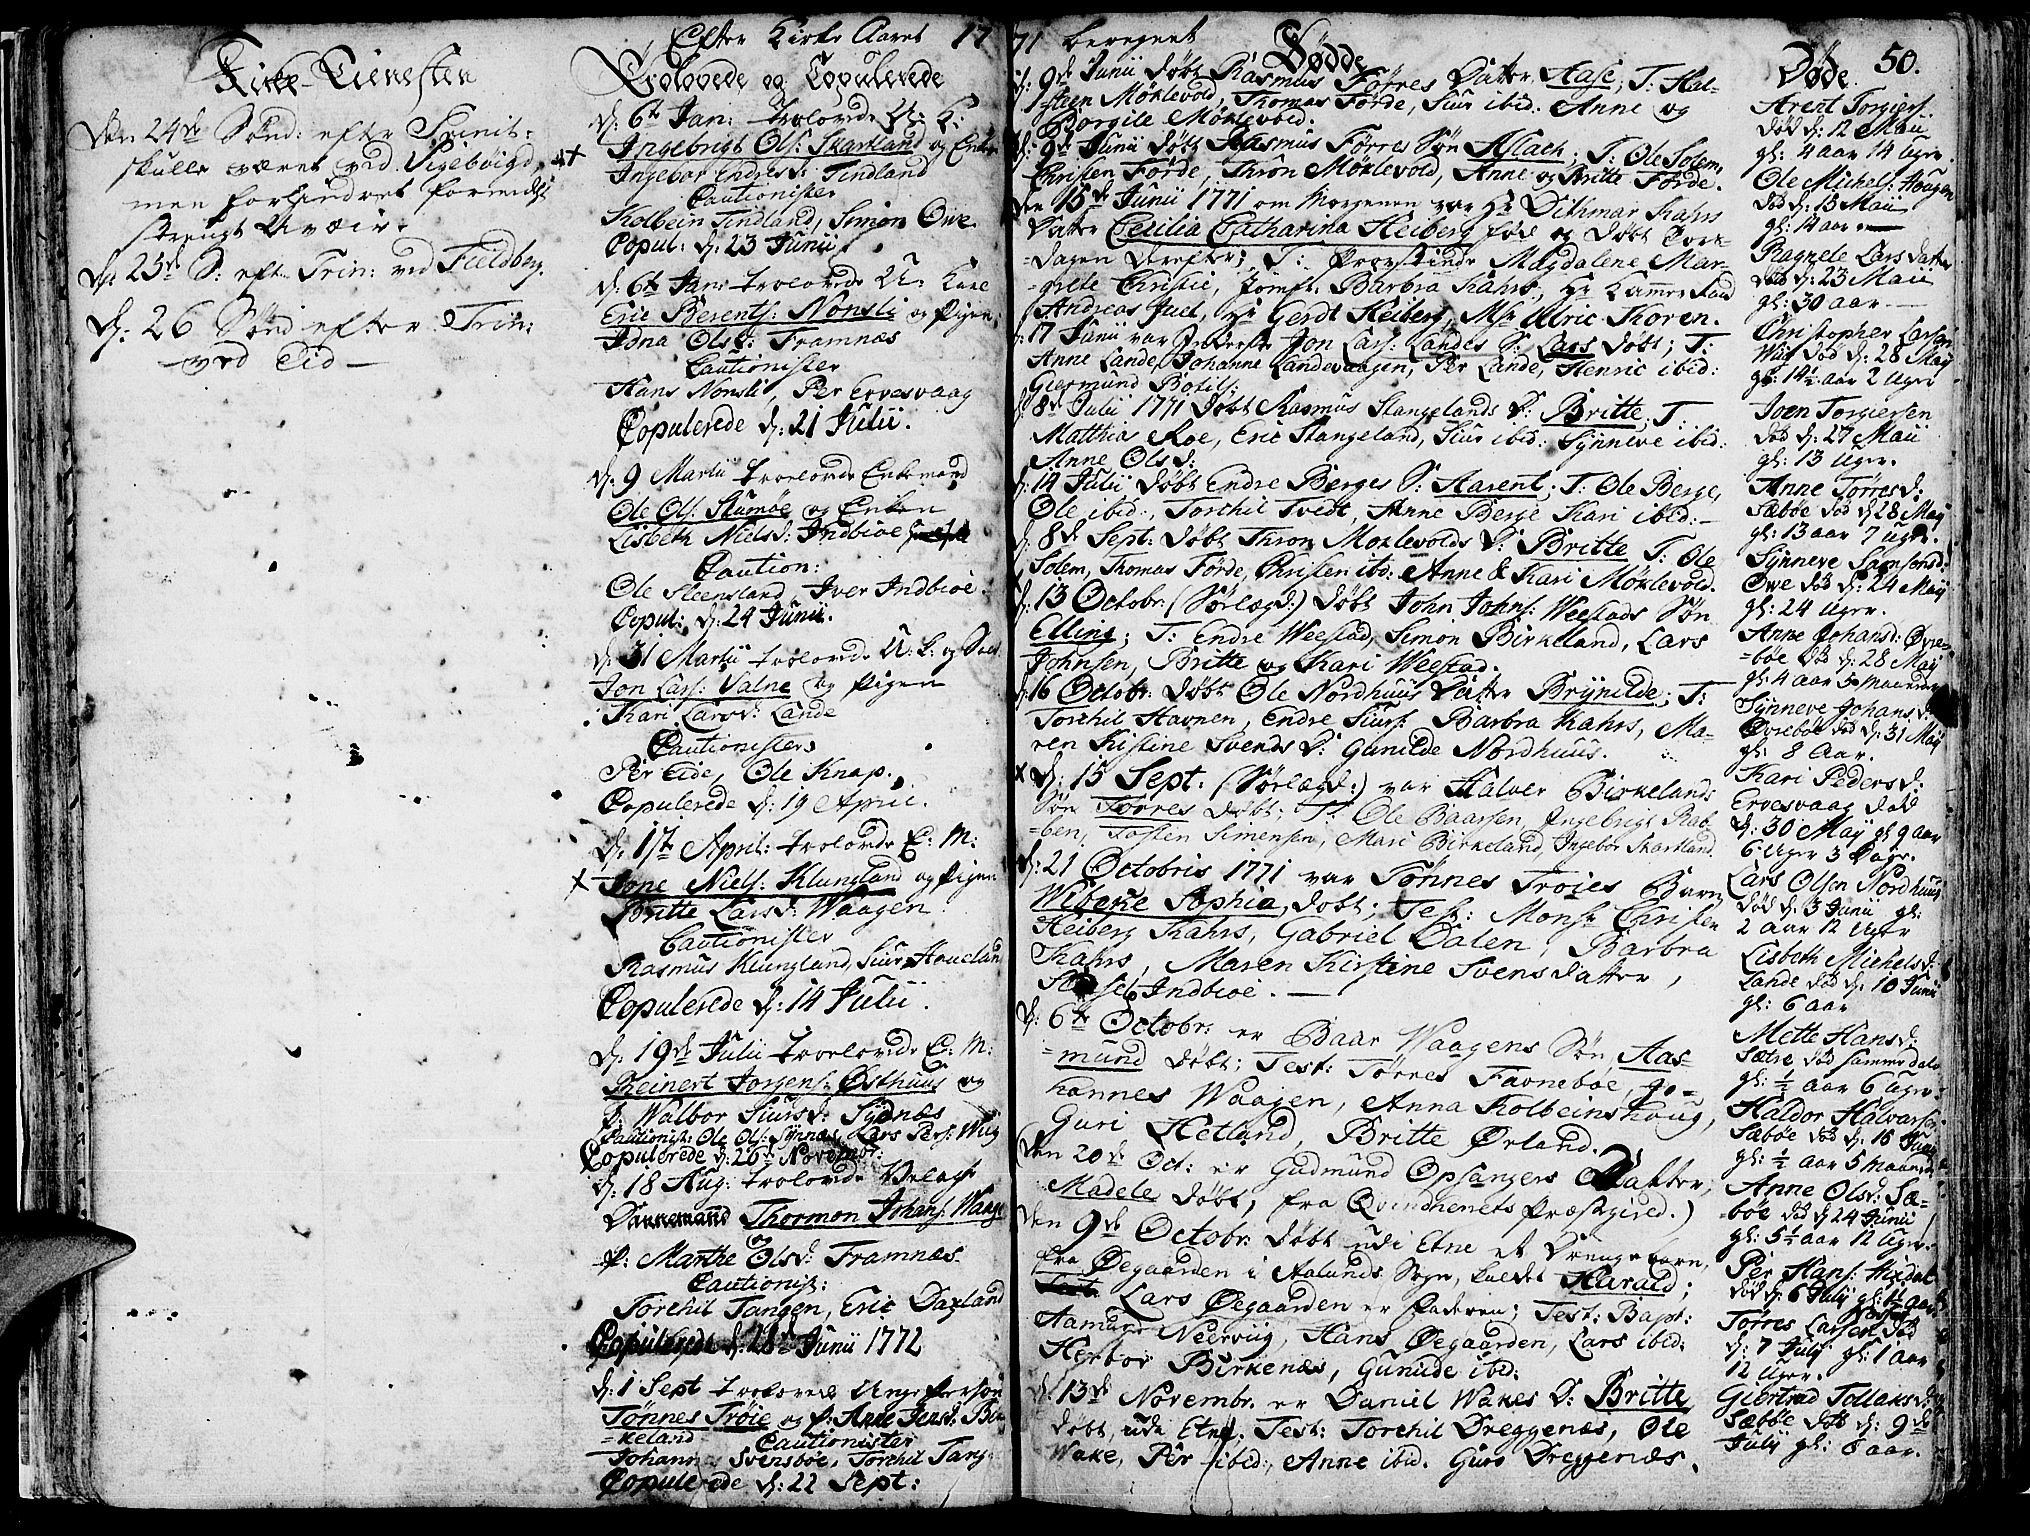 Efter Kirke Aaret 1771 beregnet
Kirke-Tienesten
Den 24de Sønd: efter Trinit:
skulle været ved Vigebøigd,
men forhindret formedelst
strengt Uveir.
Den 25de S: eft. Trin: ved Fieldberg
D: 26 Sønd efter Trin:
ved Eid
Trolovede og Copulerede
d: 6te Jan: trolovede U: K:
Ingebrigt Ols: Skartland og Enke
Ingebor Endresd: Tindland
Cautionister
Kolbein Tindland, Simon Owe
Copul: d: 23 Junii
d: 6te Jan: trolovede U: Karl
Eric Berents: Nonsli og Pigen
Edna Olsd: Framnæs
Cautionister
Hans Nonsli, Per Ervesvaag
Copulerede d: 21 Julii.
d: 9 Martii trolovede Enkemand
Ole Ols: Stumøe og Enken
Lisbeth Nielsd: Indbioe
Caution:
Ole Steensland, Iver Indbioe.
Copul: d: 24 Junii.
d: 31 Martii trolovede U: K: og Sold
Jon Lars: Valne og Pigen
Kari Larsd: Lande
Cautionister
Per Eide, Ole Knap.
Copulerede d: 19 April.
d: 1ste April: trolovede E: M:
Jone Niels: Klungland og Pigen
Britte Larsd: Waagen
Cautionister
Rasmus Klungland, Siur Haueland
Copulerede d: 14 Julii.
d: 19de Julii trolovede E: M:
Reinert Jorgens: Østhuus og
P: Walbor Siursd: Sydnæs
Cautionist: Ole Ols: Synnæs, Lars Pers: Wiig
Copulerede d: 26de Novembr:
d: 18 Aug: trolovede
Dannemand Thormon Johans: Waage
og
P: Marthe Olsd: Framnæs
Cautionist:
Torchil Tangen, Eric Daxland
Copulerede d: 28de Junii 1772
d: 1 Sept trolovede Unge Person
Tønnes Trøie og P: Anne Jensd: Bir-
=keland Cautionister
Johannes Svensbøe, Torchil Tang
Copulerede d: 22 Sept:
Fødde
d: 9de Junii døbt Rasmus Førres Datter Aase; T: Hal-
steen Møklevold, Thomas Førde, Siur ibid. Anne og
Borgile Møklevold.
d: 9de Junii døbt Rasmus Førres Søn Aslack; T: Ole Solem,
Christen Førde, Thron Møklevold, Anne og Britte Førde.
Den 15de Junii 1771 om Morgenen var Hr Dithmar Kahrs
Datter Cecilia Catharina Heiberg fød og døbt
=dagen derefter; T: Provstinde Magdalene Mar-
=grete Christie, Jomfr. Barbra Kahrs, Hr Kammer Raad
Andreas Juel, Hr Gerdt Heiberg, Msr Ulric Thoren.
d: 17 Junii var Inderste Jon Lars: Landes S: Lars døbt; T:
Anne Lande, Johanne Landevaagen, Per Lande, Henric ibid:
Giermund Botils:
d: 8de Julii 1771 døbt Rasmus Stangelands D: Britte; T:
Matthias Roe, Eric Stangeland, Siur ibid: Synneve ibid:
Anne Olsd:
d: 14 Julii døbt Endre Berges S: Aarent; T: Ole Berge,
Ole ibid:, Torchil Tvedt, Anne Berge Kari ibid:
d: 8de Sept: døbt Thron Moklevolds D: Britte T: Ole
Solem, Thomas Förde, Christen ibd: Anne & Kari Möklevold.
d: 13 Octobr: (Sørlægd:) døbt John Johns: Weestads Søn
Elling; T: Endre Weestad, Simon Birkeland, Lars
Johnsen, Britte og Kari Weestad.
d: 16 Octobr: døbt Ole Nordhuus Datter Brynilde; T:
Torchil Havnen, Endre Siurs: Barbra Kahrs, Ma-
ren Kistine Svends D: Gunilde Nordhuus.
d: 15 Sept. (Sørlægd:) var Halvor Birkelands
Søn Torres døbt; T: Ole Baarsen, Ingebrigt Rab-
=ben, Tosten Simensen, Mari Birkeland, Ingebor Skartland.
d: 21 Octobris 1771 var Tønnes Troies Barn
Wibeke Sophia, døbt; Test: Monsr Christen
Heiberg Kahrs, Gabriel Dalen, Barbra
Kahrs, Maren Kirstine Svensdatter,
Indbioe.
d: 6te Octobr: er Baar Waagens Søn Aas-
=mund døbt; Test: Torres Favnebøe, Jo-
hannes Waagen, Anna Kolbeinshoug,
Guri Hetland, Britte Ørland.
Den 20de Oct: er Gudmund Opsangers Datter,
Madele døbt, fra Qvindherrets Præstegield.)
Den 9de Octobr: døbt udi Etne et Drengebarn,
fra Øegaarden i Aalunds Sogn, kaldet Harald;
Lars Øegaarden er Faderen; Test: Bapt:
Aamund Neerviig, Hans Øegaarden, Lars ibid:
Herbor Birkenæs, Gunilde ibid:
d: 13de Novembr. er Daniel Wakes D: Britte
døbt, udi Etne. Test: Torchil Dreggenæs, Ole
Wake, Per ibid:, Anne ibid. Guro Dreggenæs.
Døde 50.
Arent Torgiers:
død d: 12 Maii
gl: 4 aar 14 Uger.
Ole Michels: Hougen
død d: 13 Maii
gl: 14 aar
Ragnele Lars datter
død d: 23 Maii
gl: 30 aar
Christopher Larsen
Wiig død d: 28 May
gl: 14½ aar 2 Uger
Joen Torgiersen
død d: 27 Maii
gl: 13 Uger.
Anne Torresd:
Sæbøe død d: 28 May
gl: 13 aar 7 uger.
Synneve Samsonsd:
Owe død d: 24 May
gl: 24 Uger.
Anne Johansd: Øvre-
=bøe død d: 28 May
gl: 4 aar 3 maaneder
Synneve Johansd:
Øvrebøe død d: 31 May
gl: 8 Aar.
Kari Pedersd:
Ervesvaag død
d: 30 May gl: 9 aar
6 Uger 3 Dage.
Lars Olsen Nordhuus
død d: 3 Junii gl:
2 aar 12 Uger
Lisbeth Michelsd:
Lande død d: 10 Junii
gl: 6 aar
Mette Hansd:
Sætre død samme dato
gl: ½ aar 6 Uger.
Haldor Halvarsen
Sæbøe død d: 16 Junii
gl: ½ aar 5 maaneder
Anne Olsd: Sæ-
=bøe død d: 24 Junii
gl: 5½ aar 12 Uger.
Per Hans:
død d: 6 July gl: 1½ aar
Torres Larsen død
d: 7 July gl: 1 aar
12 Uger.
Giertrud Tollaksd:
Sæbøe død d: 9de
July gl: 8 aar.